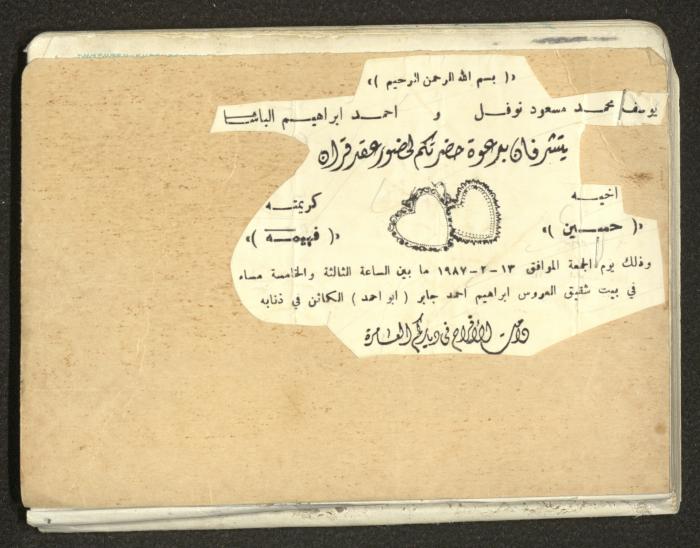 «( بسم الله الرحمن الرحيم )»
يوسف محمد مسعود نوفل و احمد ابراهيم الباشا
يتشرفان بدعوة حضرتكم لحضور عقد قران
اخيه كريمته
«( حسين )» «( فهيمه )»
وذلك يوم الجمعة الموافق ١٣-٢-١٩٨٧ ما بين الساعة الثالثة والخامسة مساء
في بيت شقيق العروس ابراهيم احمد جابر ( ابو احمد ) الكائن في ذنابه
ودامت الأفراح في دياركم العامرة